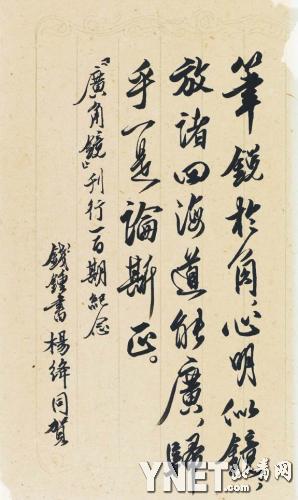 筆鋭於角、心明似鏡、
放諸四海道能廣、歸
乎一是論斯正。
『廣角鏡』刊行一百期紀念
錢鍾書 楊絳同賀
YNET
.com
北青网